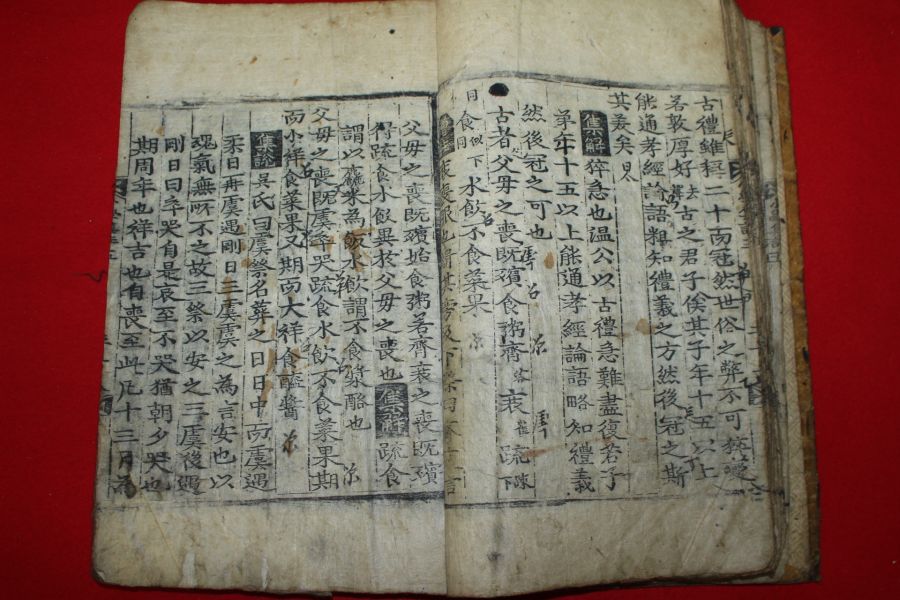 古禮雖稱二十而冠然世俗之弊不可猝變
若敦厚好去古之君子俟其子年十五以上
能通孝經論語粗知禮義之方然後冠之斯
其美矣
集解 猝急也溫公以古禮急難盡復若子
弟年十五以上能通孝經論語略知禮義
然後冠之可也
古者父母之喪既殯食粥齊咨衰崔疏下
食似下同水飲不食菜果
喪服也
父母之喪既殯始食粥若齊衰之喪既殯
得疏食水飲異於父母之喪也 集解 疏食
謂以麤米為飯水飲謂不食漿酪也
父母之喪既虞卒哭疏食水飲不食菜果期
而小祥食菜果又期而大祥食醯醬
集說 吳氏曰虞祭名葬之日日中而虞遇
柔日再虞遇剛日三虞虞之為言安也以
魂氣無所不之故三祭以安之三虞後遇
剛日曰卒哭自是哀至不哭猶朝夕哭也
期周年也祥吉也自喪至此凡十三月為